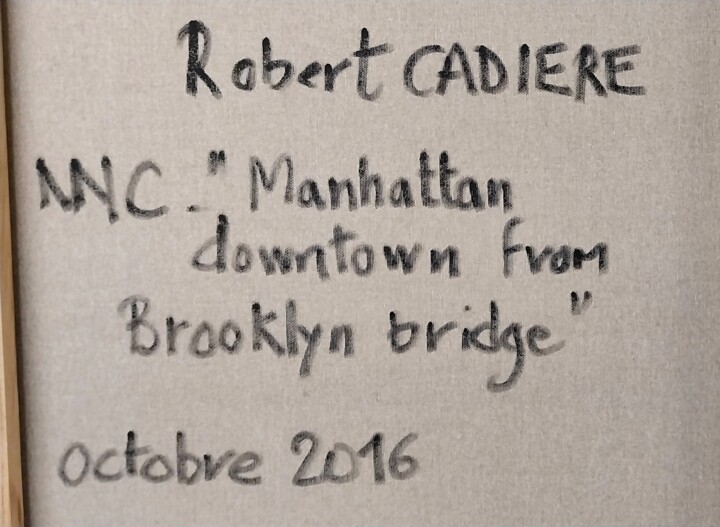 Robert CADIERE
NYC - "Manhattan
downtown from
Brooklyn bridge"
octobre 2016